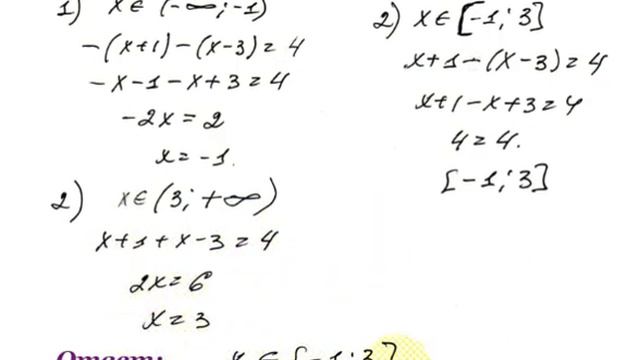 1) x ∈ (-∞; -1)
-(x+1)-(x-3) = 4
-x-1-x+3 = 4
-2x = 2
x = -1.
2) x ∈ [-1; 3]
x+1-(x-3) = 4
x+1-x+3 = 4
4 = 4.
[-1; 3]
2) x ∈ (3; +∞)
x+1+x-3 = 4
2x = 6
x = 3
Ответ: x ∈ [-1; 3]